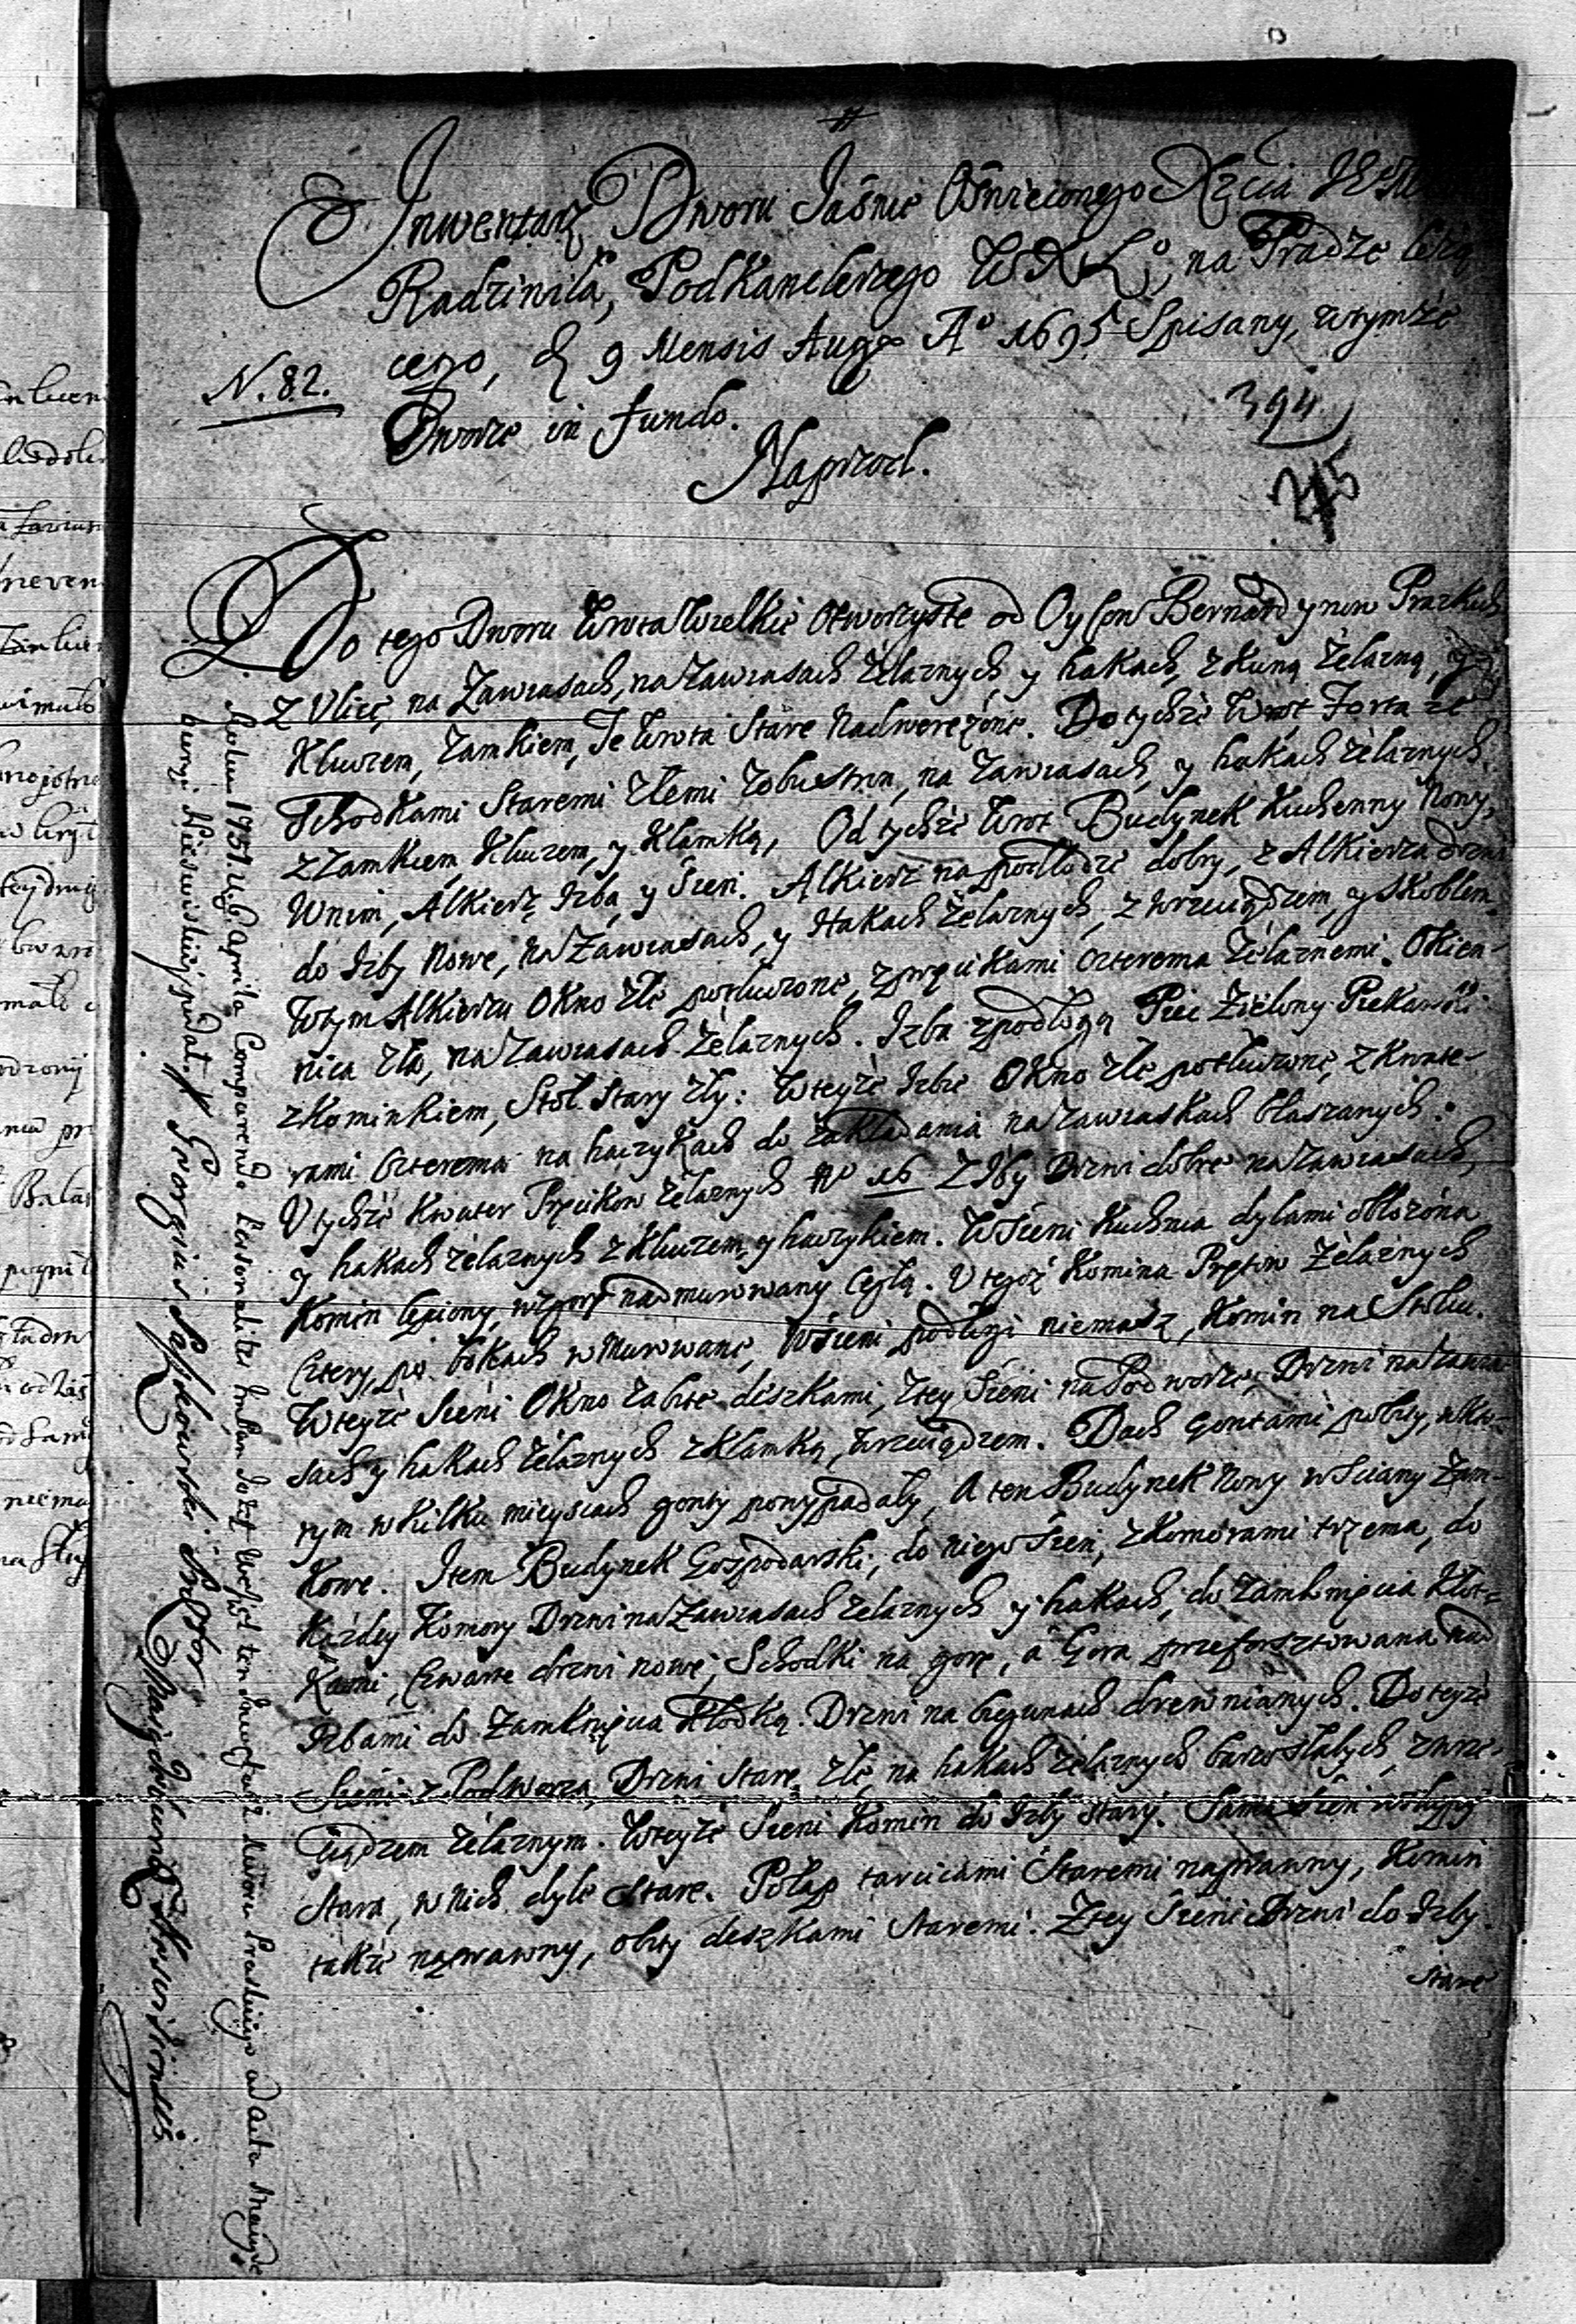 Inwentarz Dworu Jaśnie Oświeconego Xzcia
Radziwiła, PodKanclerzego W X L°, na Pradze leżą
cego, d 9 Mensis Augo A° 1695 Spisany, wtymże
Dworze in fundo.
N. 82.
394
Naprzod.
Do tego Dworu Wrota Wielkie Otworzyste od Oycow Bernardynow Prazkich
z Vlicy na Zawiasach, na Zawiasach Żelaznych y hakach, z Kuną Żelazną,
Kluczem, Zamkiem, Te Wrota Stare Nadwerężone. Do tychże Wrot Forta ze
Schodkami Staremi Złemi Zobustron, na Zawiasach, y hakach żelaznych
z Zamkiem, Kluczem, y Klamką, Od tychże Wrot Budynek Kuchenny Nowy,
Wnim, Alkierz, Izba, y Sień. Alkierz na podłodze dobry, z Alkierza drzwi
do Izby Nowe, na Zawiasach, y Hakach Żelaznych, z wrzeciądzem, y skoblem.
Wtym Alkierzu Okno złe potłuczone, z pręcikami czterema Żelaznemi. Okien-
nica zła, na Zawiasach Żelaznych. Izba z podłogą Piec Zielony Piekarski
z Kominkiem, Stoł Stary zły: Wteyże Izbie Okno złe potłuczone, z Kwate-
rami czterema na haczykach do zakładania na zawiaskach blaszanych:
V tychże Kwater Pręcikow żelaznych N° 16 Z Izby Drzwi dobre na Zawiasach,
y hakach żelaznych z Kluczem, y haczykiem. W Sieni Kuchnia dylami obłożona
Komin lepiony, wzgorę nadmurowany Cegłą. V tegoż Komina Prętow Żelaznych
Cztery, po bokach w Murowane, W Sieni podłogi niemasz, Komin na Słolu.
Wteyże Sieni Okno zabite deszkami, ztey Sieni na Podworze, Drzwi na Zawia-
sach y hakach żelaznych z Klamką, wrzeciądzem. Dach Gontami pobity, w Kto-
rym w kilku mieyscach gonty powypadały, A ten Budynek Nowy w Sciany Zam-
Kowe. Item Budynek Gospodarski, do niego Sień, z Komorami trzema, do
Kazdey Komory Drzwi na Zawiasach żelaznych y hakach, do Zamknięcia Kłot-
Kami, Czwarte drzwi nowe, Schodki na gorę, a Gora przeforsztowana nad
Izbami do Zamknięcia Kłodką. Drzwi na biegunach drewnianych. Do teyże
Sieni z Podworza, Drzwi Stare, złe, na hakach żelaznych barzo słabych, z wrze-
ciądzem żelaznym. Wteyże Sieni Komin do Izby stary. Sama sień
Stara, w Nich dyle Stare. Połap tarcicami Staremi naprawny, Komin
także naprawny, obity deszkami Staremi. Ztey Sieni Drzwi do Izby
Stare
Aprila Comparendo Personaliter ten Inwentarz Dworu Praskiego ad acta
podał. Georgius Instor